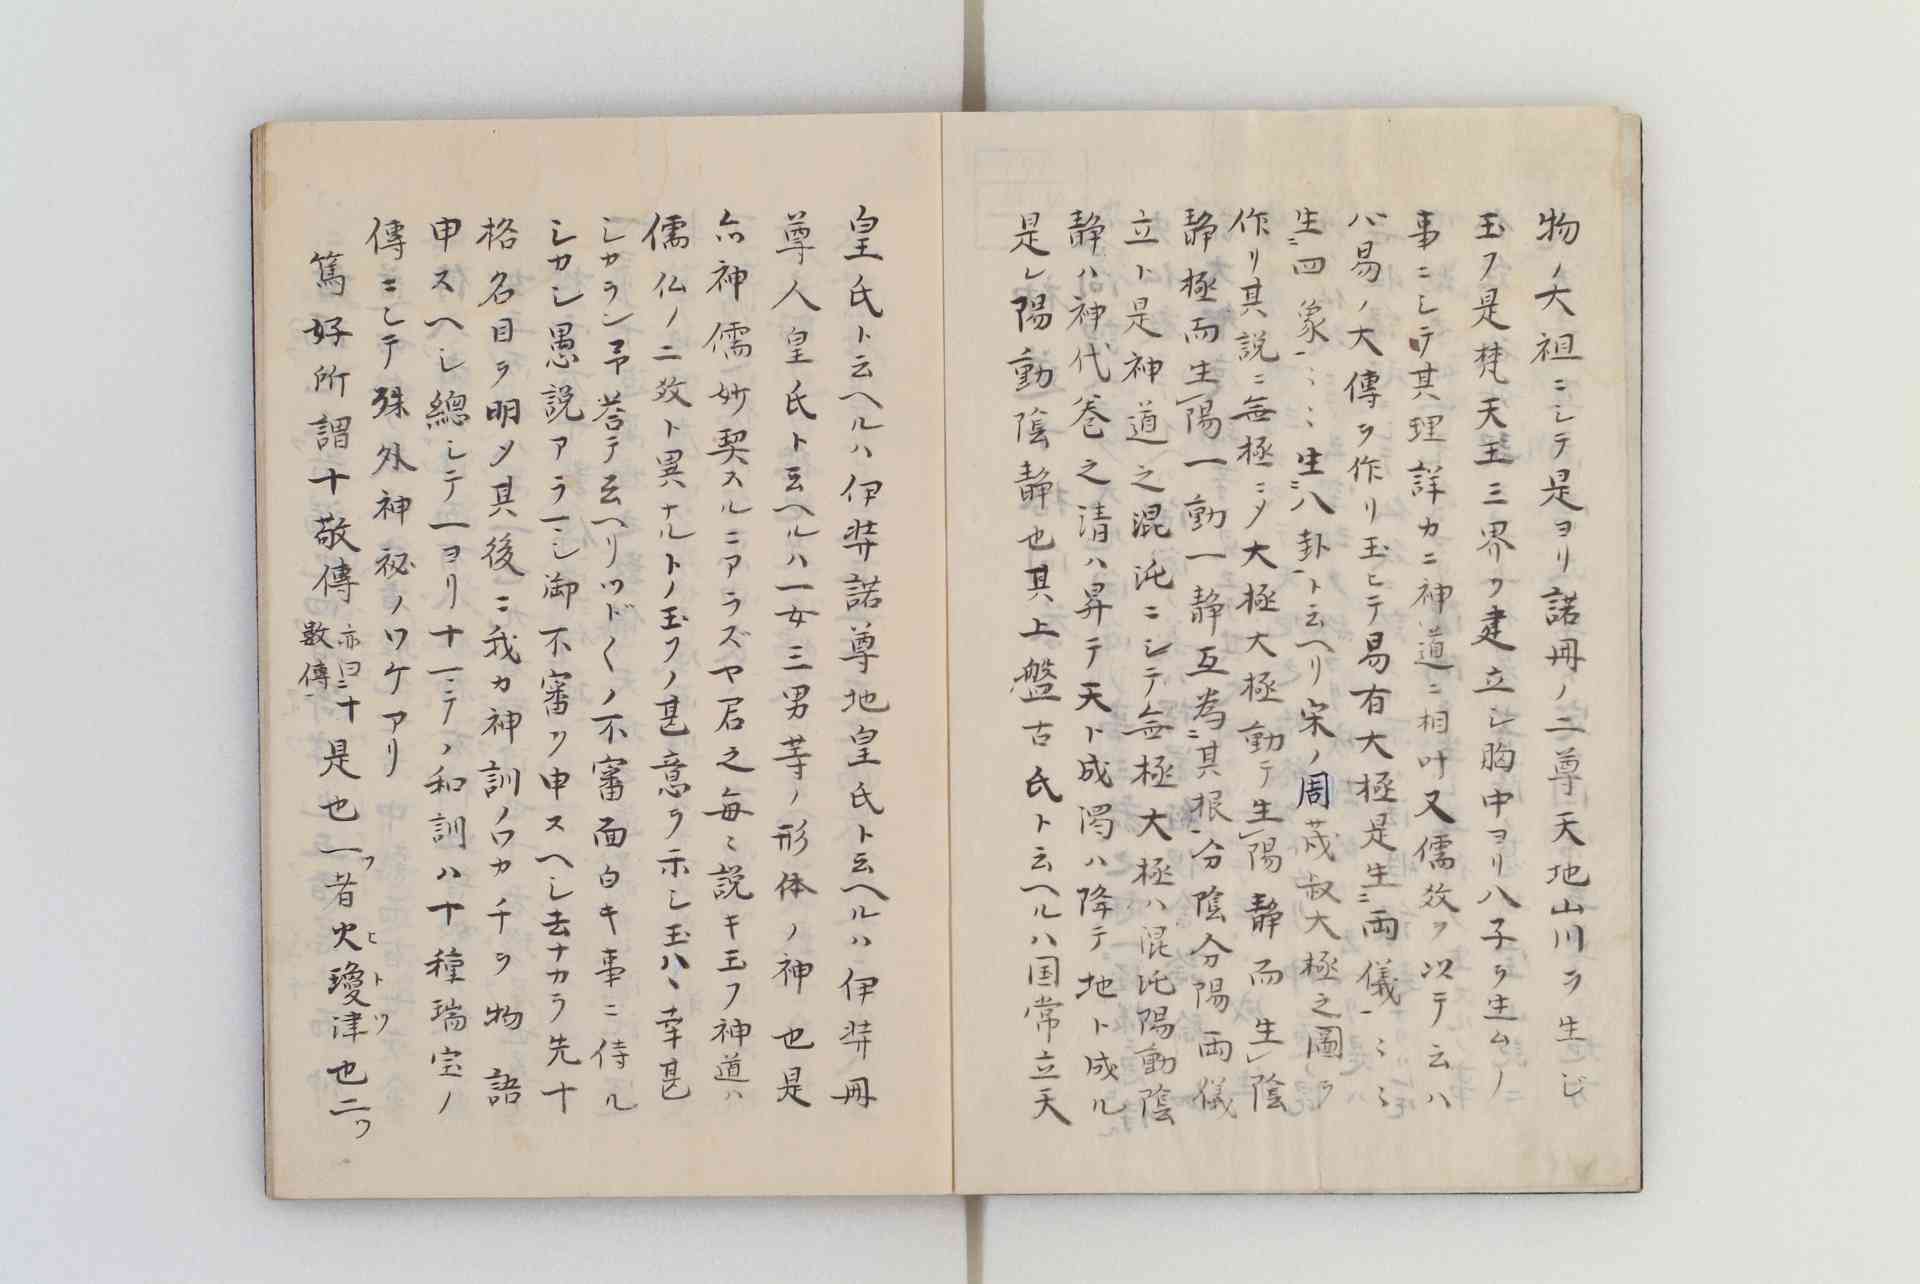 物ノ大祖ニシテ是ヨリ諾冊ノ二尊天地山川ヲ生じ
玉フ是梵天王三界ヲ建立シ胸中ヨリ八子ヲ生ムノ
事ニシテ其理詳カニ神道ニ相叶又儒教ヲ以テ云ハ
バ易ノ大傳ヲ作リ玉ヒテ易有大極是生ニ両儀一ミミ
生ニ四象一ミミ生ニ八卦一ト云ヘリ宋ノ周茂叔大極之圖ヲ
作リ其説ニ無極ニメ大極大極動テ生レ陽静而生レ陰
静極而生レ陽一動一静互為ニ其根一分陰分陽両儀
立ト是神道之混沌ニシテ無極大極ハ混沌陽動陰
静ハ神代巻之清ハ昇テ天ト成濁ハ降テ地ト成ル
是レ陽動陰静也其上盤古氏ト云ヘルハ国常立天
皇氏ト云ヘルハ伊弉諾尊地皇氏ト云ヘルハ伊弉冊
尊人皇氏ト云ヘルハ一女三男等ノ形体ノ神也是
亦神儒妙契スルニアラズヤ君之毎ミ説キ玉フ神道ハ
儒仏ノ二教ト異ナルトノ玉フノ甚意ヲ示シ玉ハヽ幸甚
シカラン予答テ云ヘリツドくノ不審面白キ事ニ侍ル
シカシ愚説アラーシ御不審ヲ申スヘシ去ナカラ先十
格名目ヲ明メ其後ニ我カ神訓ノワカチヲ物語
申スヘシ總シテ一ヨリ十一テノ和訓ハ十種瑞宝ノ
傳ニシテ殊外神祕ノワケアリ
篤好所謂十敬傳亦曰ニ十數傳一是也一ツ者火瓊津ヒトツ也二ツ